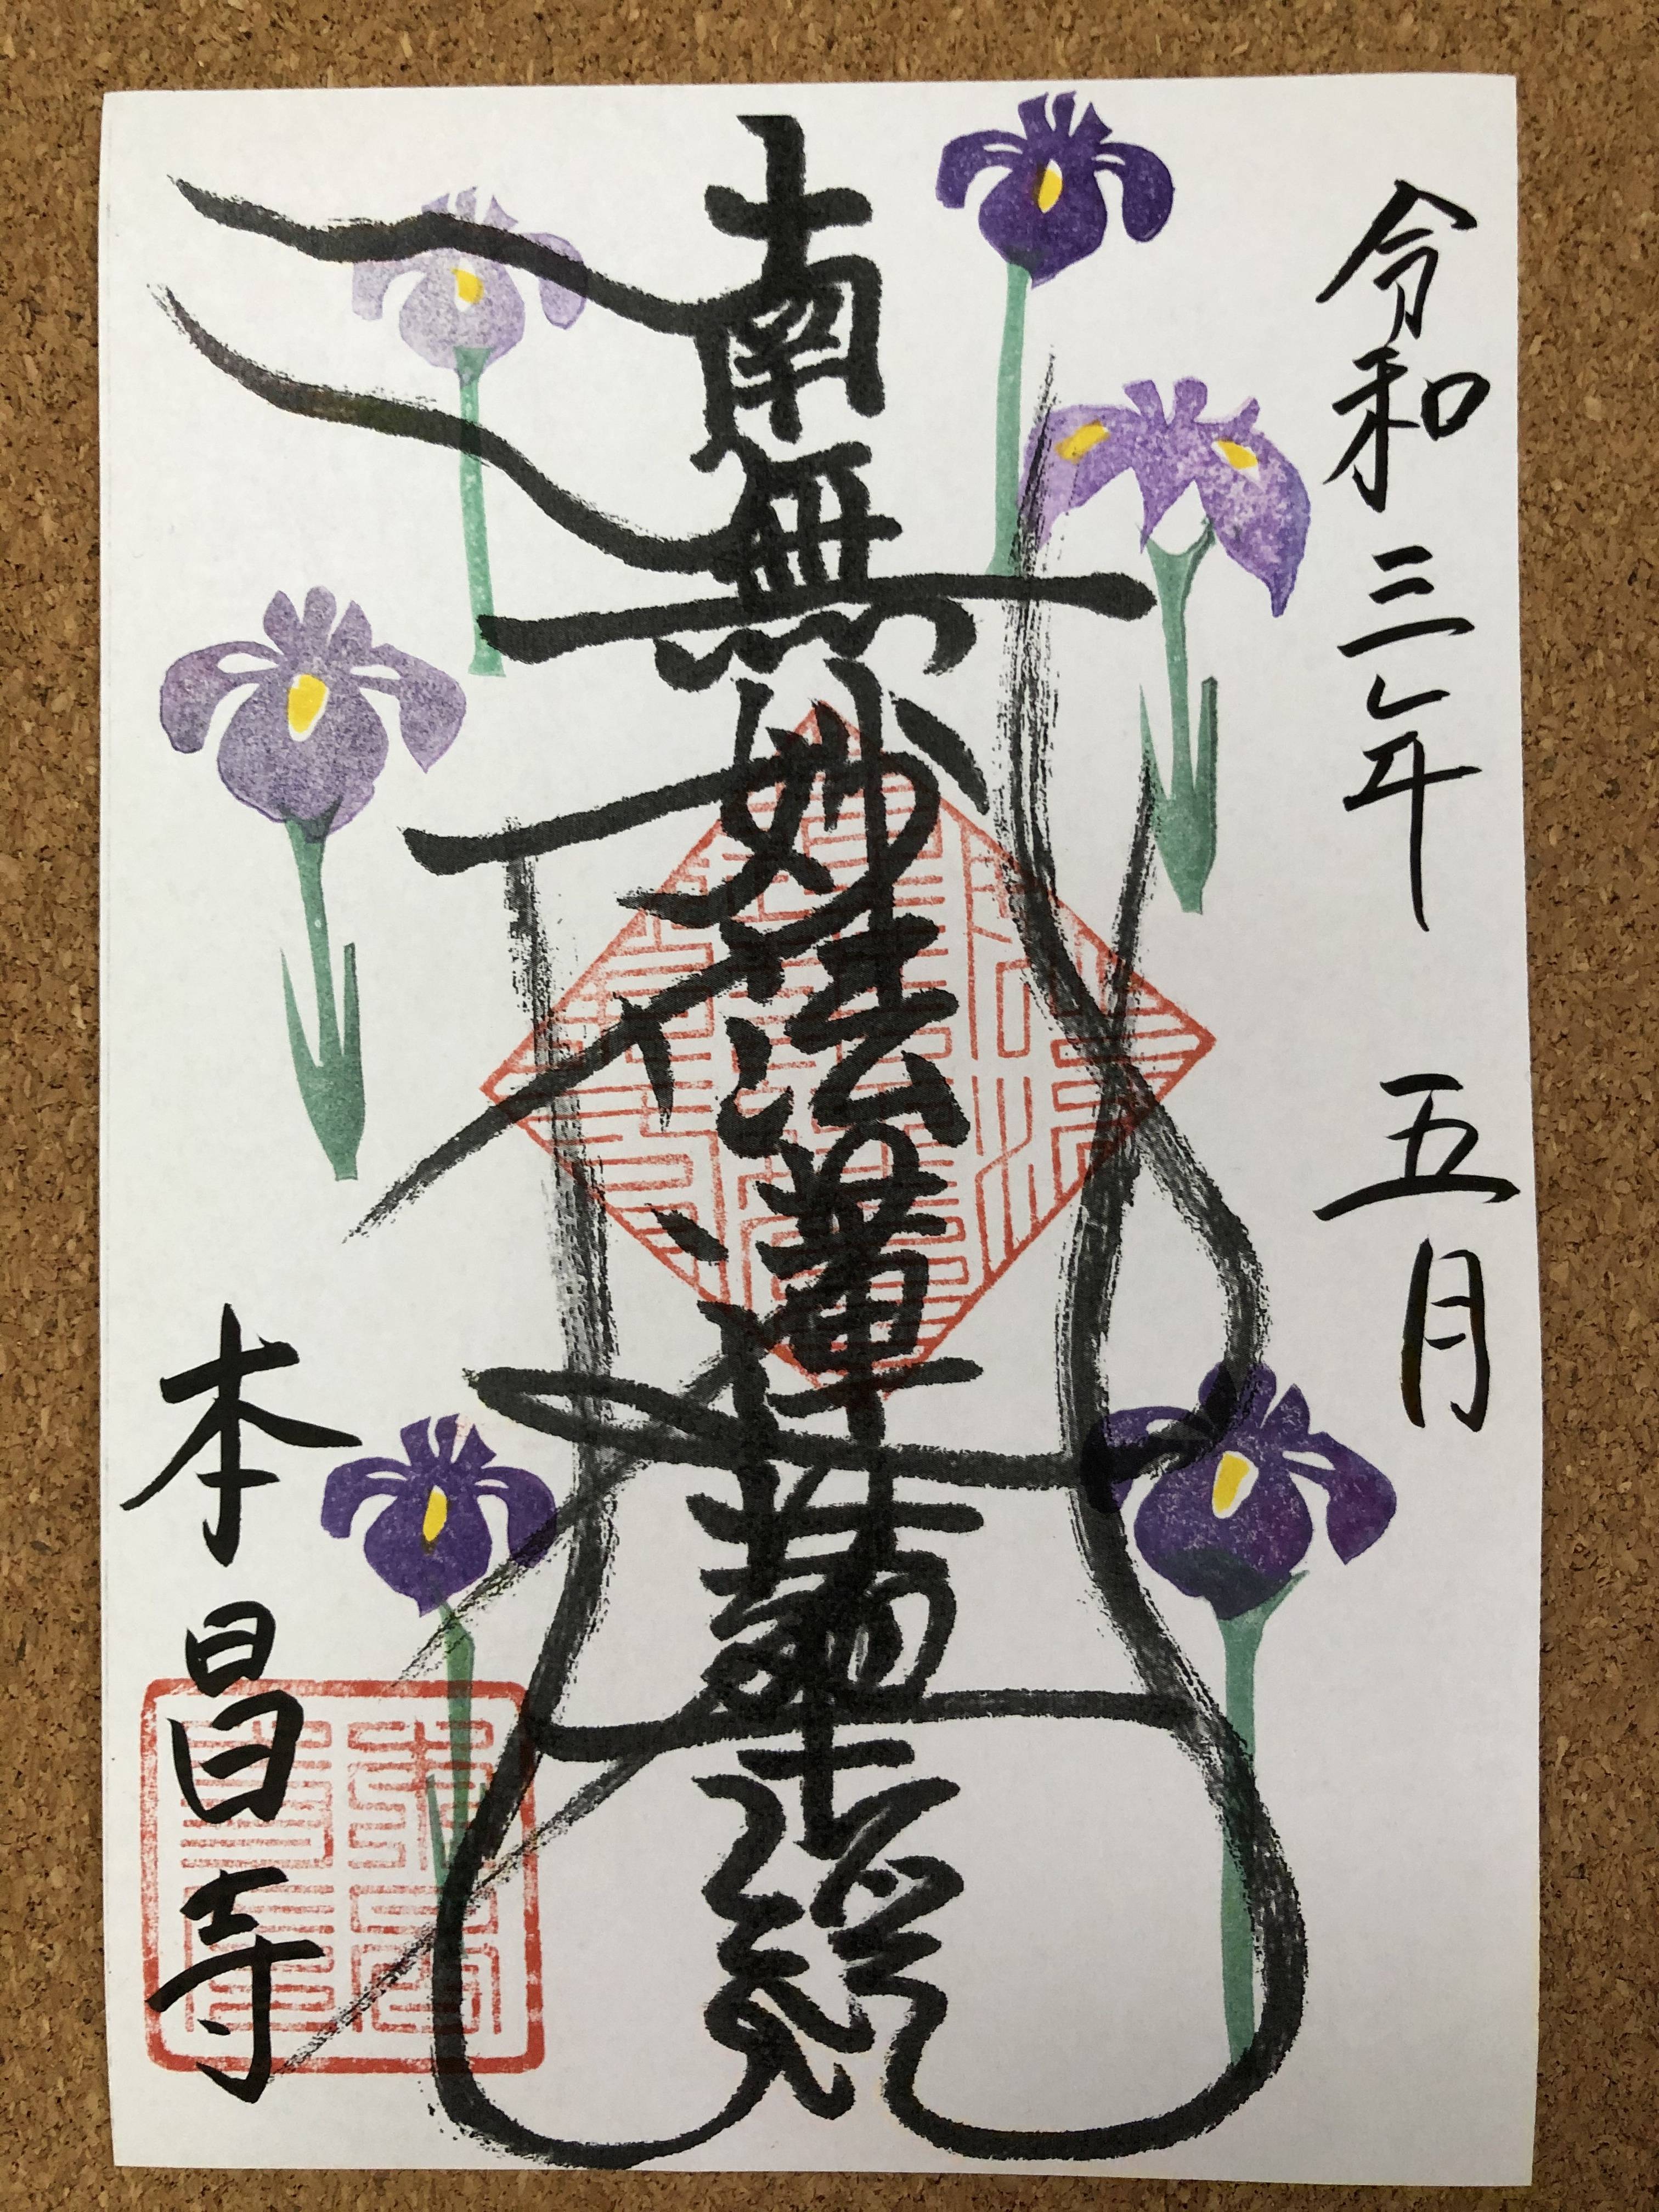 令和三年 五月
南無妙法蓮華経
本昌寺